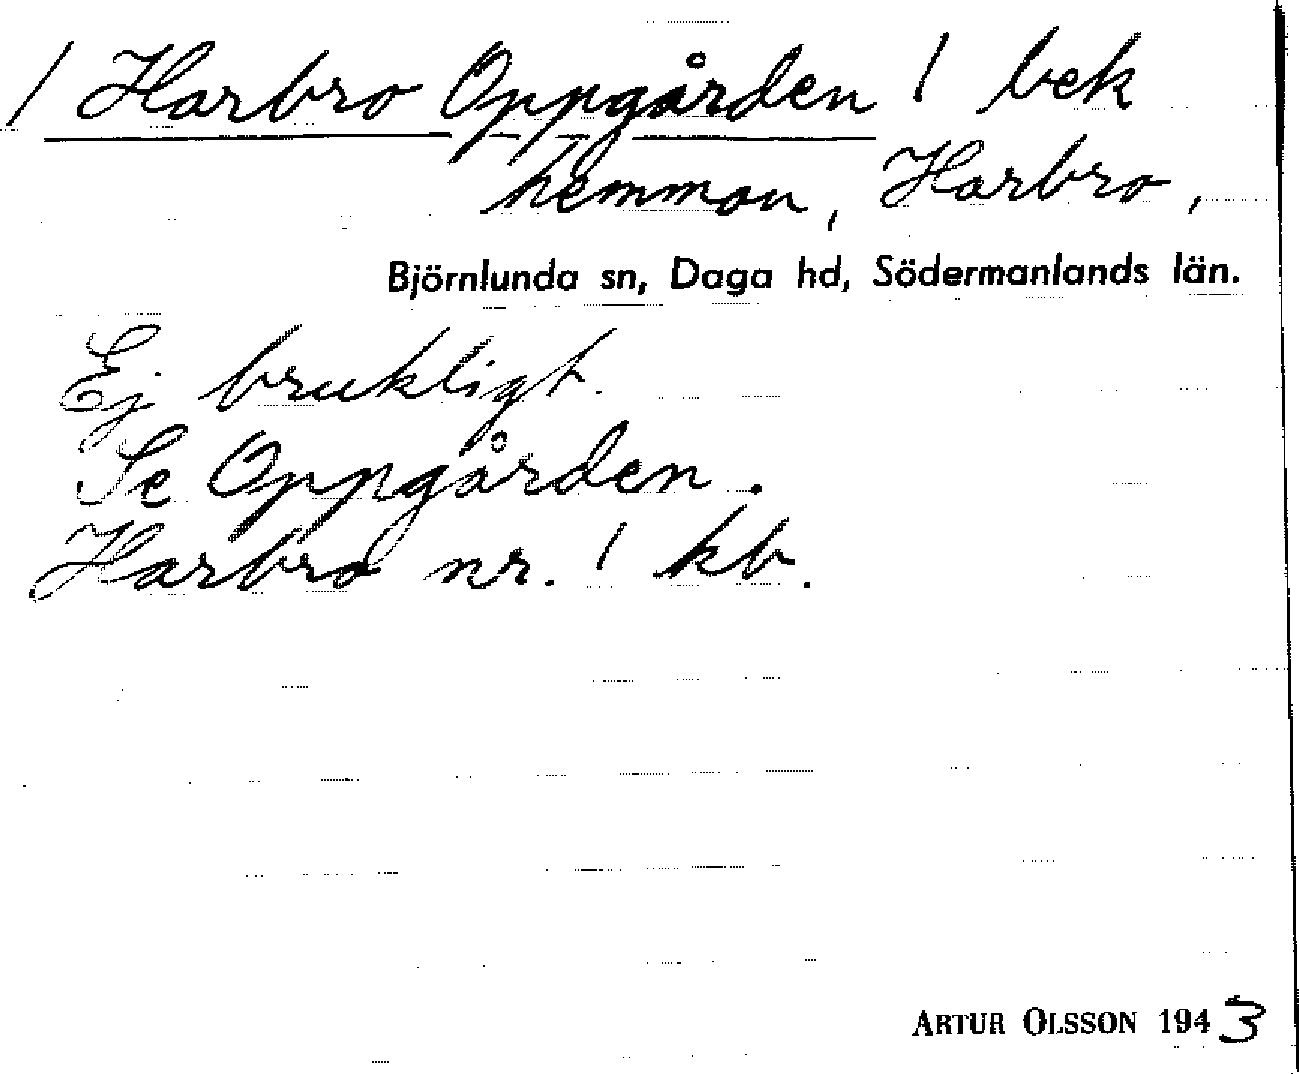 / Harbro Oppgården / bek
hemman, Harbro,
Björnlunda sn, Daga hd, Södermanlands län.
Ej brukligt.
Se Oppgården.
Harbro nr. 1 kb.
ARTUR OLSSON 1943